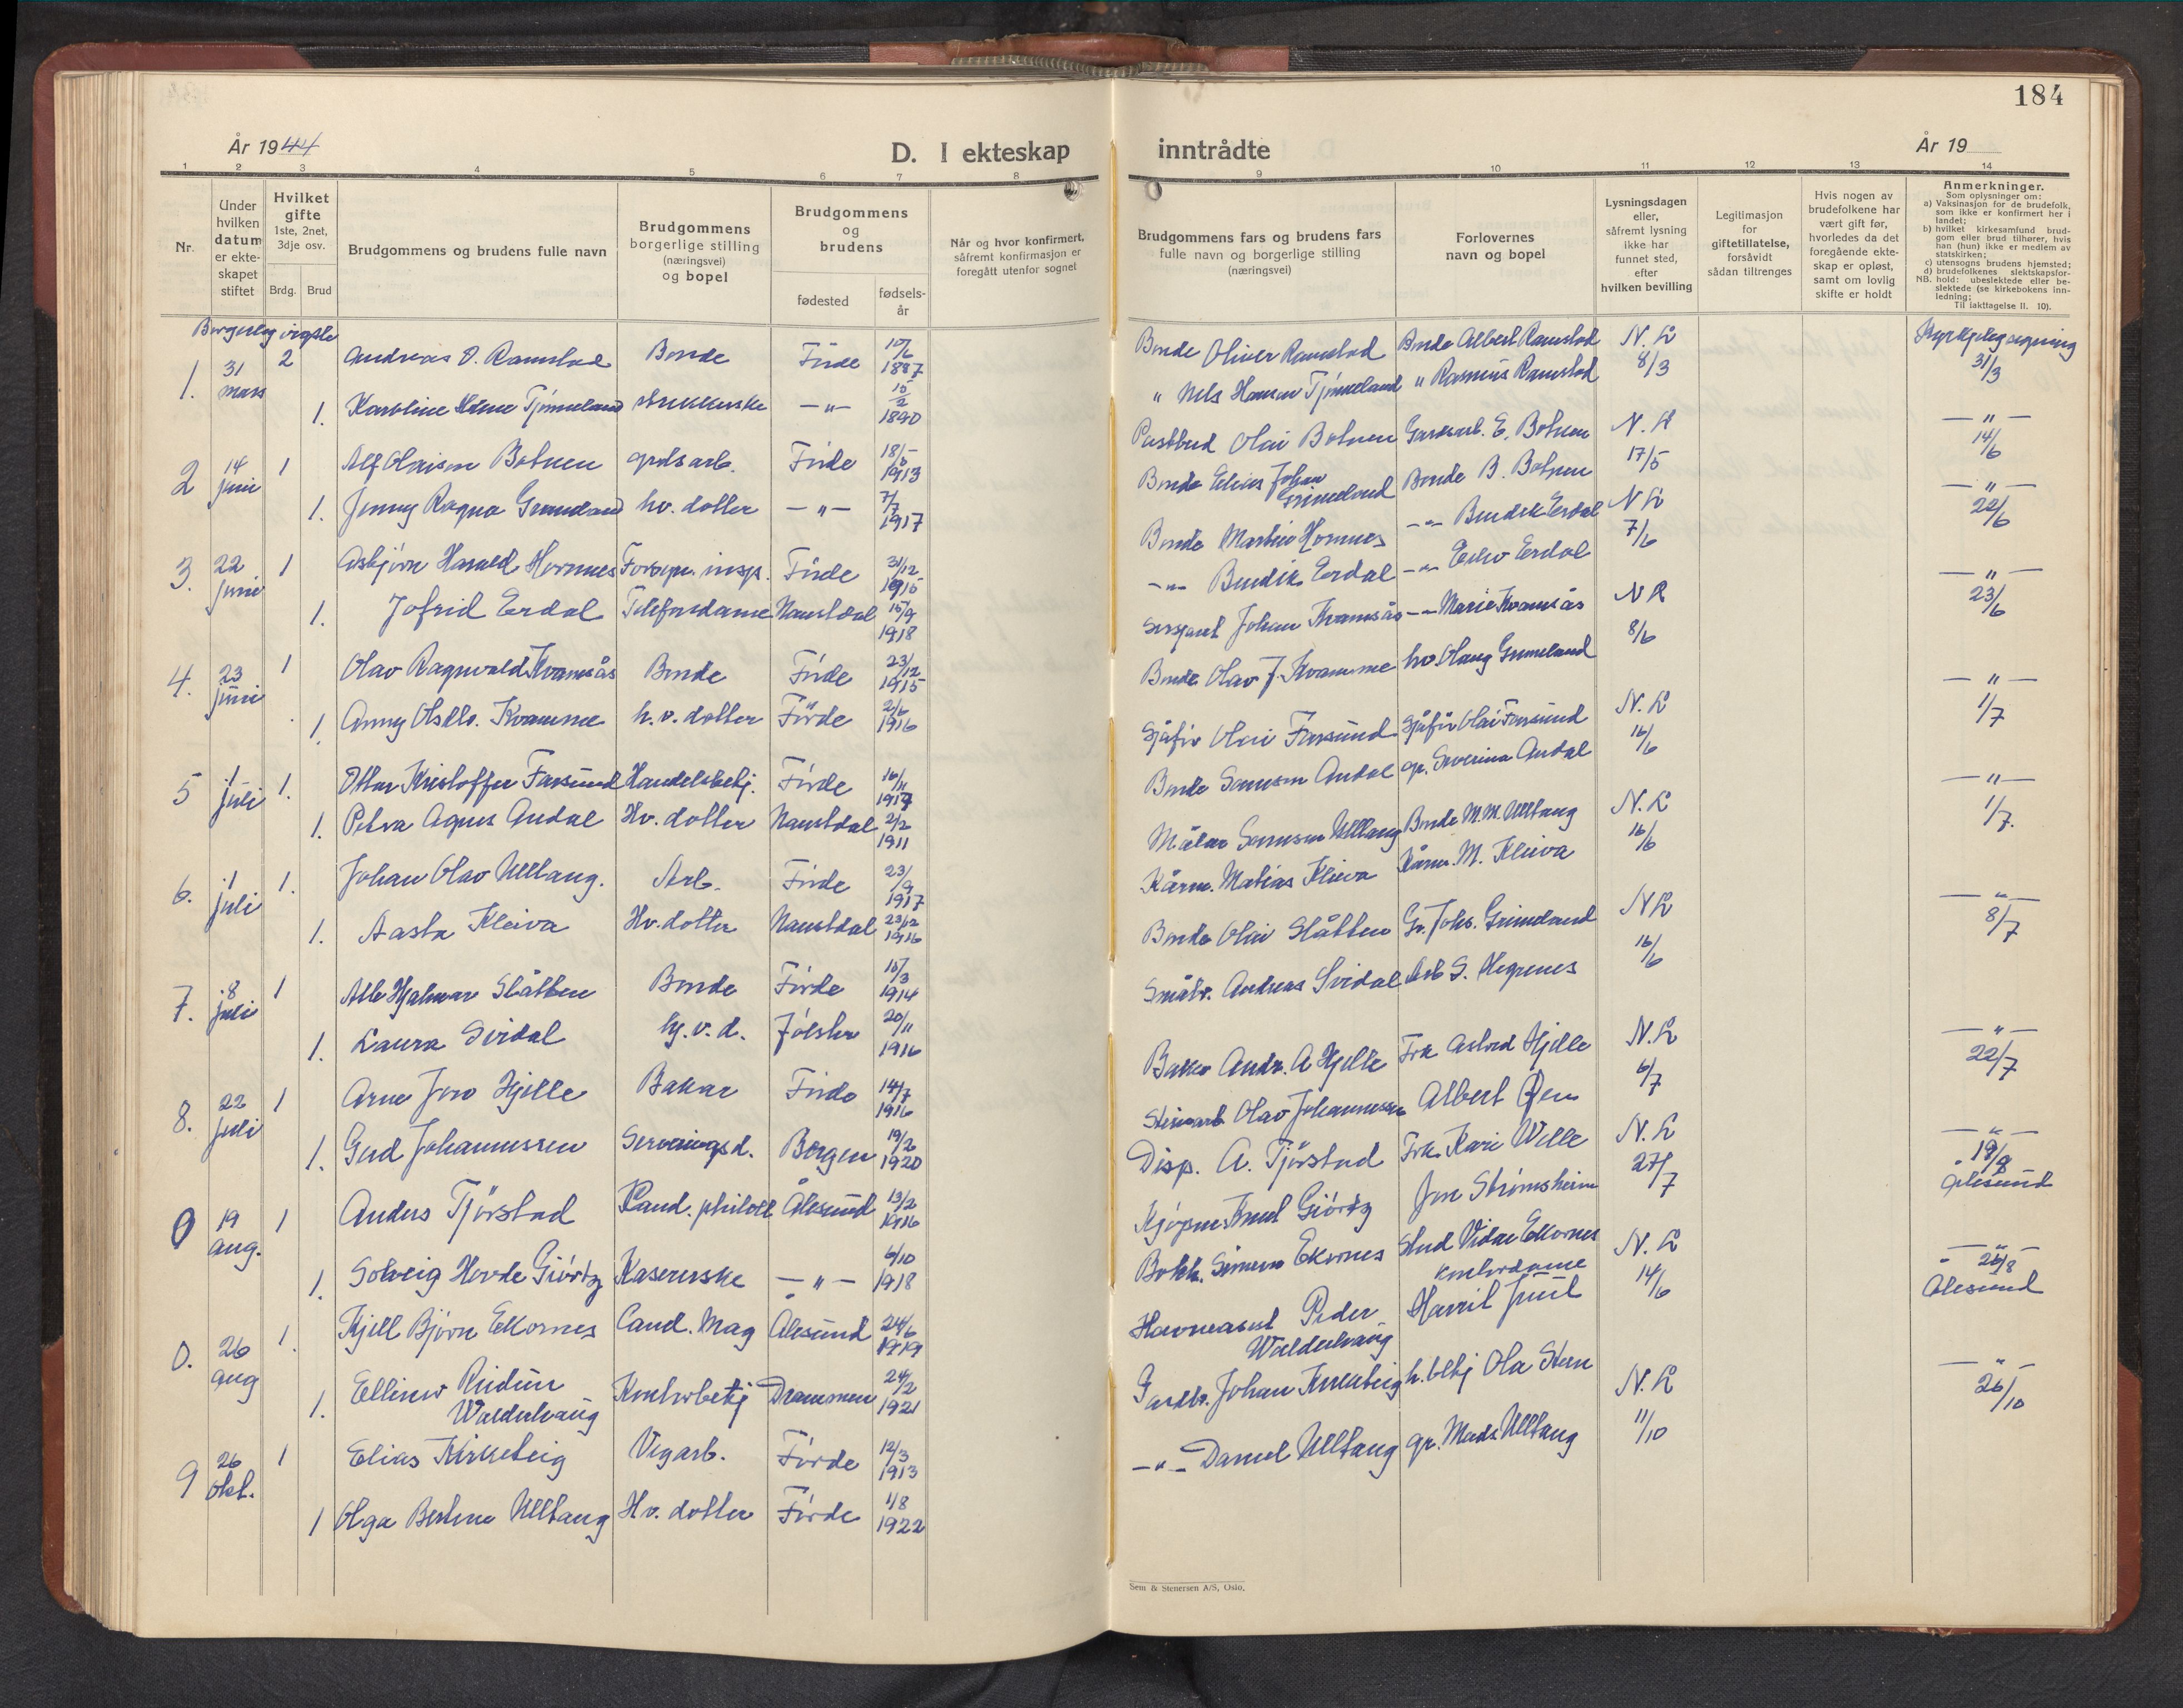 184
År 1944
D. I ekteskap inntrådte
År 19
1 2 3 4 5 6 7 8 9 10 11 12 13 14
Nr.
Under
hvilken
datum
er ekte-
skapet
stiftet
Hvilket
gifte
1ste, 2net,
3dje osv.
Brdg. Brud
Brudgommens og brudens fulle navn
Brudgommens
borgerlige stilling
(næringsvei)
og bopel
Brudgommens
og
brudens
fødested
fødsels-
år
Når og hvor konfirmert,
såfremt konfirmasjon er
foregått utenfor sognet
Brudgommens fars og brudens fars
fulle navn og borgerlige stilling
(næringsvei)
Forlovernes
navn og bopel
Lysningsdagen
eller,
såfremt lysning
ikke har
funnet sted,
efter
hvilken bevilling
Legitimasjon
for
giftetillatelse,
forsåvidt
sådan tiltrenges
Hvis nogen av
brudefolkene har
vært gift før,
hvorledes da det
foregående ekte-
skap er opløst,
samt om lovlig
skifte er holdt
Anmerkninger.
Som oplysninger om:
a) Vaksinasjon for de brudefolk,
som ikke er konfirmert her i
landet;
b) hvilket kirkesamfund brud-
gom eller brud tilhører, hvis
han (hun) ikke er medlem av
statskirken;
c) utensogns brudens hjemsted;
d) brudefolkenes slektskapsfor-
NB. hold: ubeslektede eller be-
slektede (se kirkebokens inn-
ledning;
Til iakttagelse II. 10).
Borgerleg vigsle
1. 31 mars 2 Andreas O. Ramstad Bonde Förde 10/6 1887 Bonde Oliver Ramstad Bonde Albert Ramstad N. L 8/3 Kyrkjeleg signing 31/3
1. Karoline Tjönneland Förde —"— 15/2 1890 " Nils Hansen Tjönneland " Rasmus Ramstad
2 14 juni 1 Alf Olaisen Botnen gardsarb. Förde 18/5 1913 Postbud Olai Botnen Gardsarb. E. Botnen N. L 17/5 —"— 14/6
1. Jenny Ragna Grimeland hv. dotter —"— 7/7 1917 Bonde Elias Johan Grimeland Bonde B. Botnen
3. 22 juni 1 Asbjörn Harald Hornnes Forsyn. insp. Förde 31/12 1915 Bonde Martin Hornnes —"— Bendik Erdal N L 7/6 —"— 22/6
1. Jofrid Erdal Telefondame Naustdal 15/9 1918 —"— Bendik Erdal —"— Erdal
4. 23 juni 1 Olav Ragnvald Kvamsås Bonde Förde 23/12 1915 Sersjant Johan Kvamsås —"— Marie Kvamsås N L 8/6 —"— 23/6
1. Anny Olsdtr. Kvamme h. v. dotter Förde 2/6 1916 Bonde Olav J. Kvamme hv. Olaug Grimeland
5 1 juli 1. Ottar Kristoffer Farsund Handelsbetj. Förde 16/11 1917 Sjåför Olai Farsund Sjåför Olai Farsund N. L 16/6 —"— 1/7
1. Petra Agnes Andal Hv. dotter Naustdal 2/2 1911 Bonde Samson Andal gr. Severina Andal
6. 1 juli 1. Johan Olav Ulltang. Arb. Förde 23/9 1917 Målar Samson Ulltang Bonde M. M. Ulltang N. L 16/6 —"— 1/7.
1. Aasta Kleiva Hv. dotter Naustdal 23/12 1916 Kårm. Matias Kleiva Kårm. M. Kleiva
7. 8 juli 1 Atle Hjalmar Slåtten Bonde Förde 15/3 1914 Bonde Olai Slåtten Gr. Johs. Grimeland N L 16/6 —"— 8/7
1. Laura Svidal hj. v. d. Jölster 20/11 1916 Småbr. Andreas Svidal Arb S. Hegrenes
8. 22 juli 1 Arne Jow Hjelle Bakar Förde 14/7 1916 Bakar Andr. A Hjelle Frk Astrid Hjelle N. L 6/7 —"— 22/7
1. Gerd Johannessen Serveringsd. Bergen 19/2 1920 Steinarb Olav Johannessen Albert Øen
9 19 aug. 1 Anders Tjörstad Kand. philoll Ålesund 13/2 1916 Disp. A. Tjörstad Frk. Kari Wille N. L 27/7 —"— 19/8 Ålesund
1. Solveig Hovde Giörtz Kasererske —"— 6/10 1918 Kjöpm Knut Giörtz Jon Strömsheim
0. 26 aug 1. Kjell Björn Ekornes Cand. Mag Ålesund 24/6 1919 Bokh. Simen Ekornes Stud Vidar Ekornes N. L 14/6 —"— 26/8 Ålesund
1. Ellinor Reidun Walderhaug Kontorbetj Drammen 24/2 1921 Havneasist Peder Walderhaug kontordame Juul
9 26 okt. 1 Elias Kirketeig Vegarb. Förde 12/3 1913 Gardbr. Johan Kirketeig h. betj Ola Steen N. L 11/10 —"— 26/10
1 Olga Bertine Ulltang Hv. dotter Förde 1/8 1922 —"— Daniel Ulltang gr. Mads Ulltang
Sem & Stenersen A/S, Oslo.